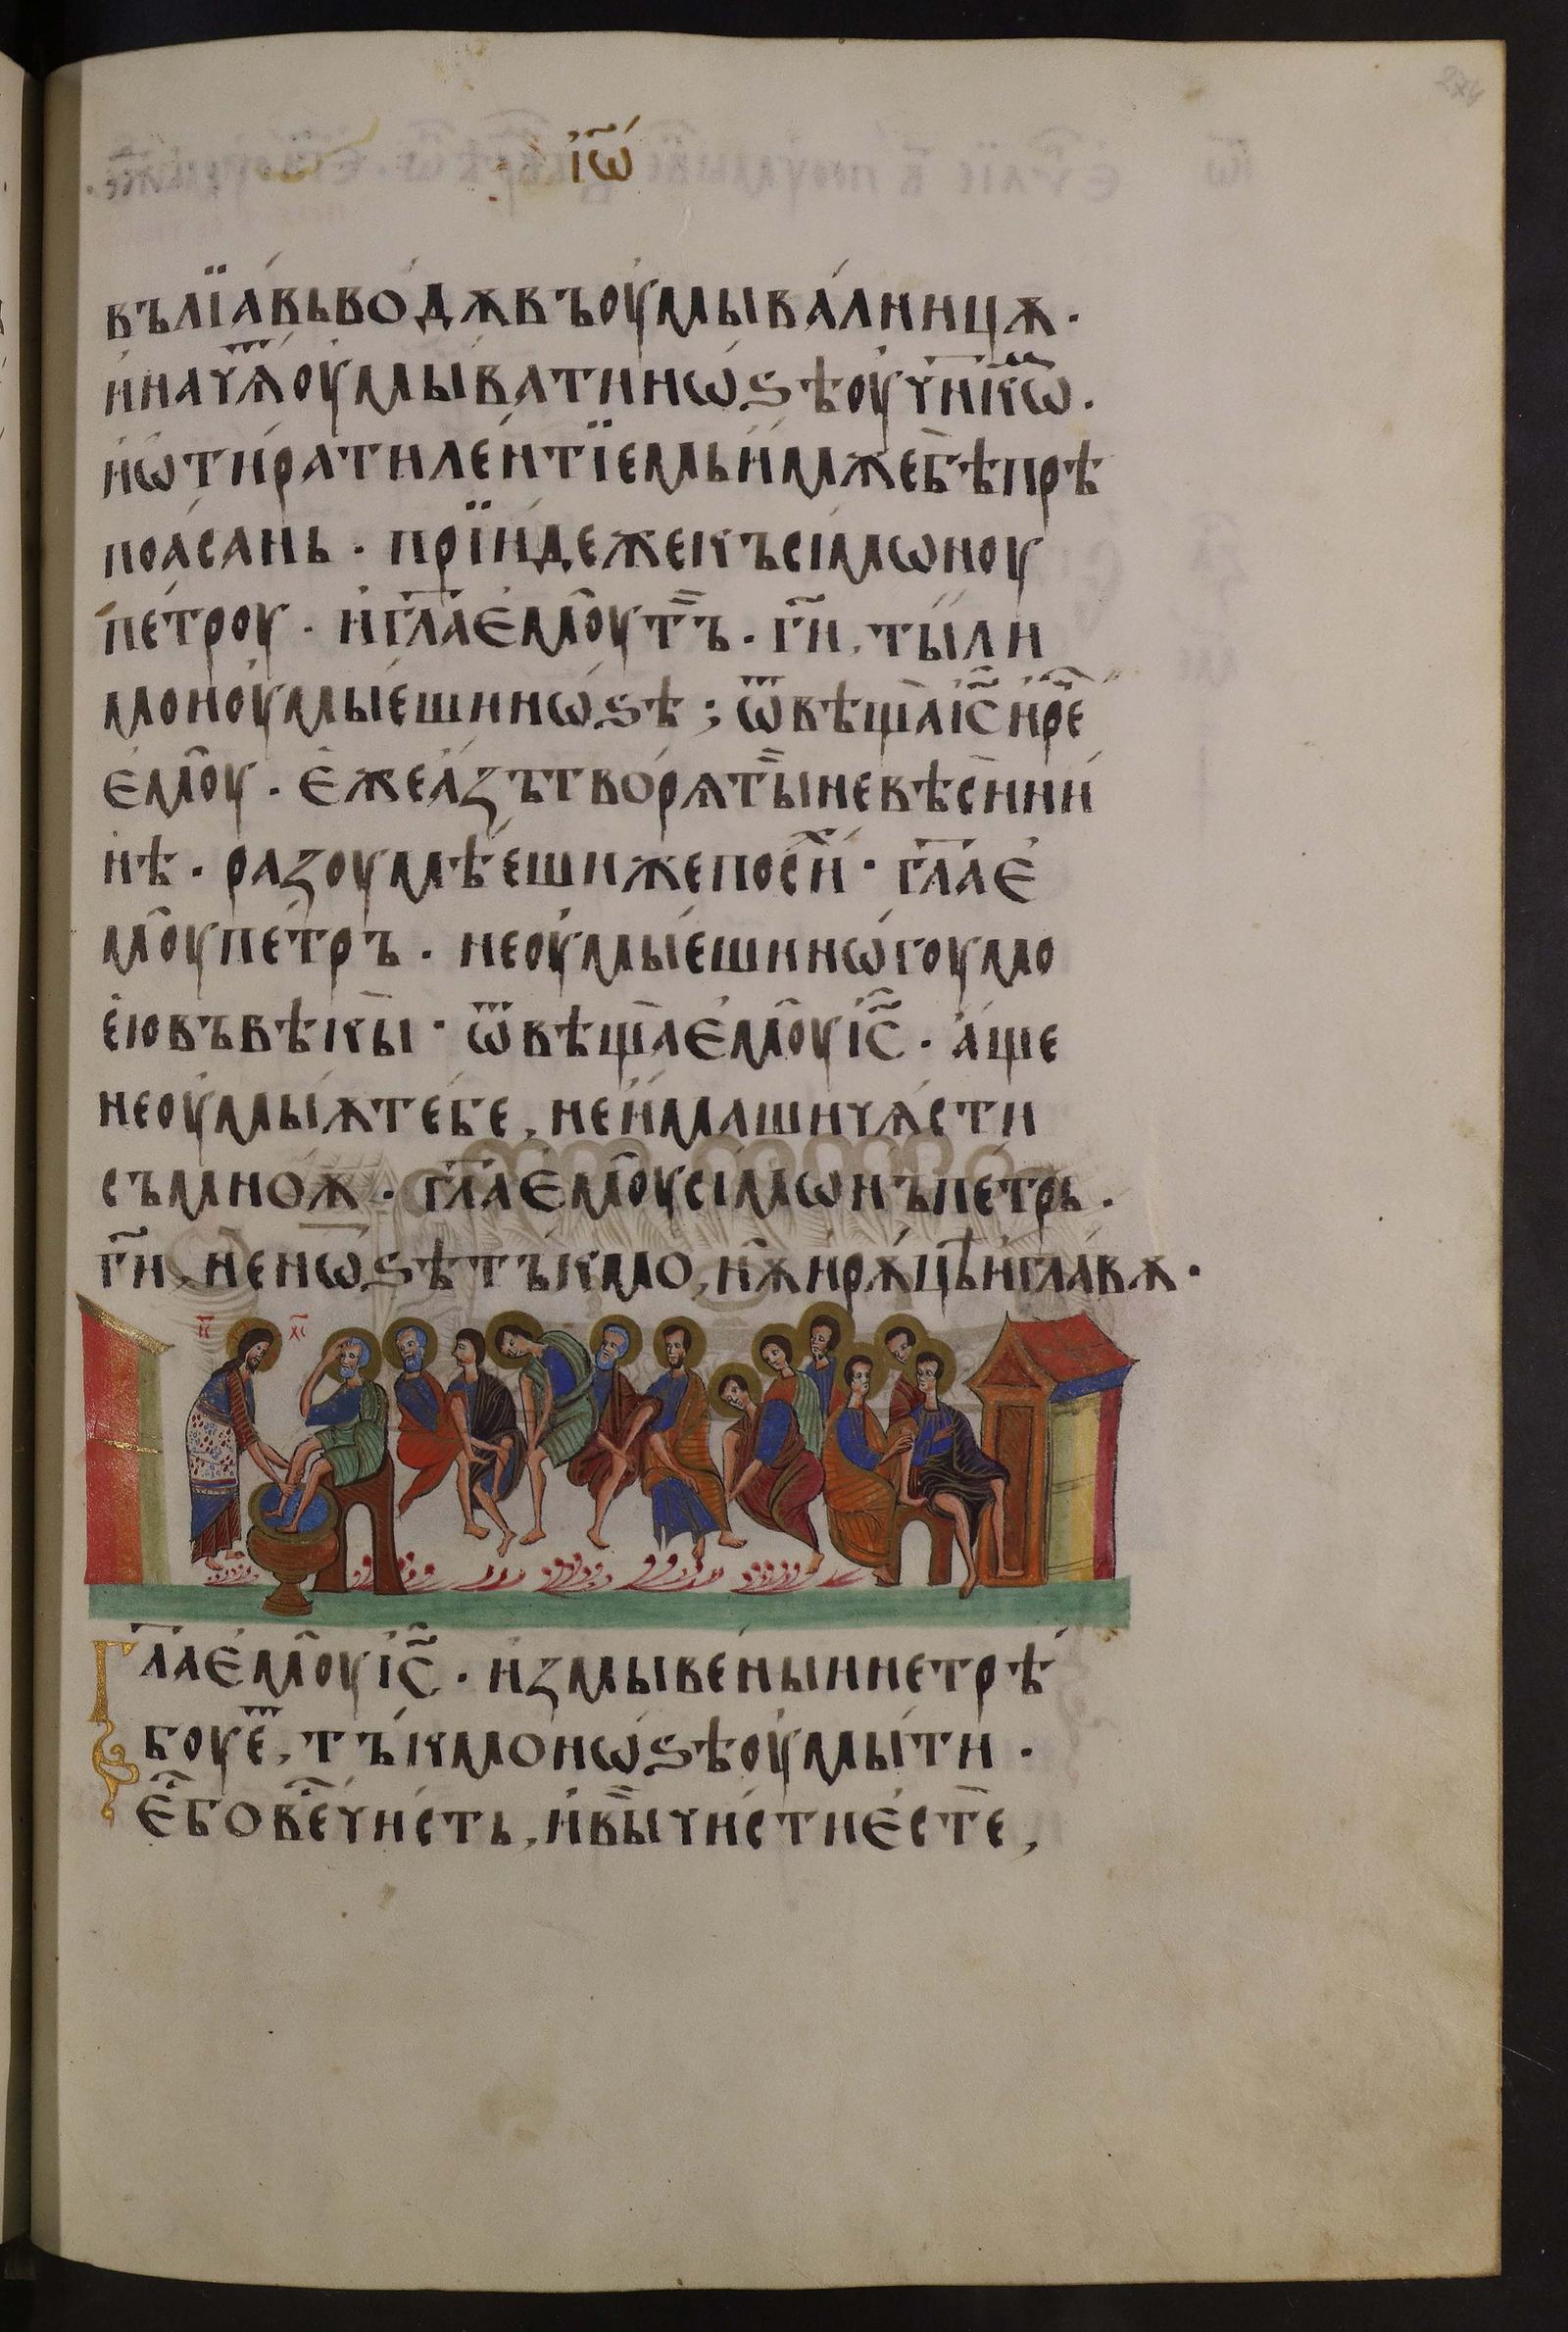 274
і҆ѡ҃
вълїа́вьво́дѫвъоу҆мыва́лницѫ ·
и҆нач҃ѫоу҆мы́ватинѡ́ѕѣоу҆ч҃ни́кѡ҃ ·
и҆ѡ҆ти́ратиле́нтїемьи҆мжебѣ̀прѣ
поа́сань · прїи́дежекъсі́мѡноу
пе́троу · и҆гл҃ае҆мꙋ̑т̏ъ · гн҃и, ты́ли
моноу҆мы́ешинѡ́ѕѣ ; ѿвѣща̀і҆с҃и҆рє
є҆моу̑ · є҆жеа҆́зътворѫ̀т̏ы̏невѣ́сини
нѣ · разоумѣ́ешижепоси́ · гл҃ає҆
моу̑пе́тръ · неоу҆мы́ешинѡ́гоумо
е́ювъвѣ́кы · ѿвѣща̀є҆моу̑і҆с҃ · а҆́ще
неоу҆мы́ѫтебе, неи҆́машичѧ́сти
съмно́ѫ · гл҃ає҆моу̑сі́мѡнъпе́трь ·
гн҃и, ненѡѕѣтъ́кмо, нѫ̀ирѫ́цѣи҆гла́вѫ ·
і҃с х҃с
Гл҃ає҆моу̑і҆с҃ · и҆змыве́ныинетрѣ́
боуе҃, тъ́кмонѡ́ѕѣоу҆мы́ти ·
є҆́бове҃чи́сть, и҆в̏ы̏чи́стиє҆стѐ,